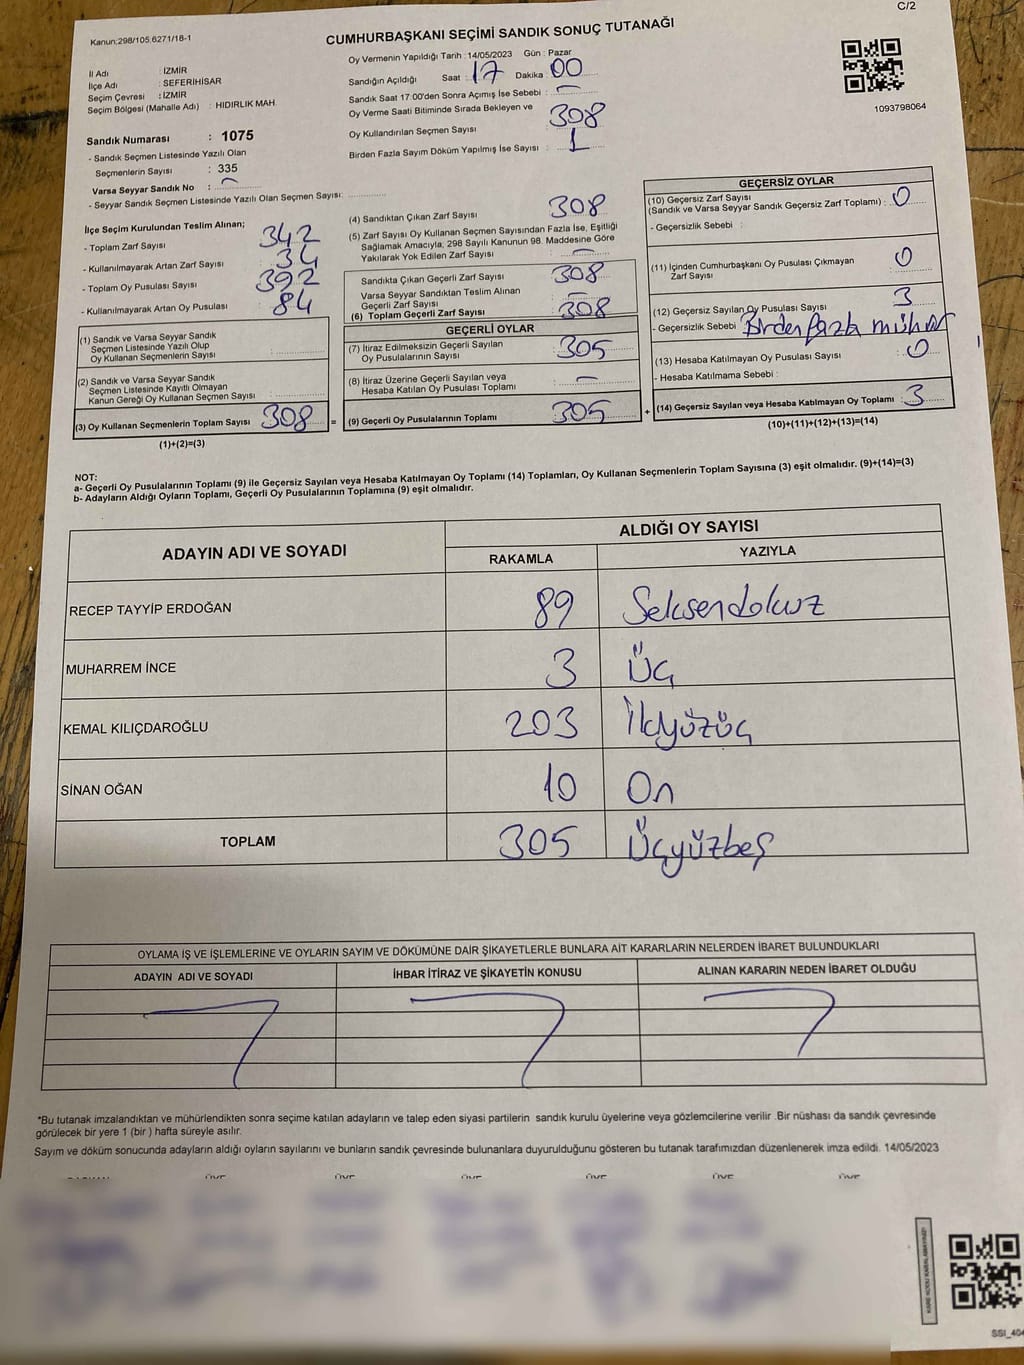 C/2
Kanun:298/105,6271/18-1
CUMHURBAŞKANI SEÇİMİ SANDIK SONUÇ TUTANAĞI
İl Adı : İZMİR
İlçe Adı : SEFERİHİSAR
Seçim Çevresi : İZMİR
Seçim Bölgesi (Mahalle Adı) : HIDIRLIK MAH.
Oy Vermenin Yapıldığı Tarih : 14/05/2023 Gün : Pazar
Sandığın Açıldığı Saat : 17 Dakika : 00
Sandık Saat 17.00'den Sonra Açımış İse Sebebi : –
Oy Verme Saati Bitiminde Sırada Bekleyen ve
Oy Kullandırılan Seçmen Sayısı : 308
Birden Fazla Sayım Döküm Yapılmış İse Sayısı : 1
1093798064
Sandık Numarası : 1075
- Sandık Seçmen Listesinde Yazılı Olan
Seçmenlerin Sayısı : 335
Varsa Seyyar Sandık No : –
- Seyyar Sandık Seçmen Listesinde Yazılı Olan Seçmen Sayısı:
İlçe Seçim Kurulundan Teslim Alınan;
- Toplam Zarf Sayısı : 342
- Kullanılmayarak Artan Zarf Sayısı : 34
- Toplam Oy Pusulası Sayısı : 392
- Kullanılmayarak Artan Oy Pusulası : 84
(1) Sandık ve Varsa Seyyar Sandık
Seçmen Listesinde Yazılı Olup
Oy Kullanan Seçmenlerin Sayısı :
(2) Sandık ve Varsa Seyyar Sandık
Seçmen Listesinde Kayıtlı Olmayan
Kanun Gereği Oy Kullanan Seçmen Sayısı :
(3) Oy Kullanan Seçmenlerin Toplam Sayısı : 308 =
(1)+(2)=(3)
(4) Sandıktan Çıkan Zarf Sayısı : 308
(5) Zarf Sayısı Oy Kullanan Seçmen Sayısından Fazla İse, Eşitliği
Sağlamak Amacıyla, 298 Sayılı Kanunun 98. Maddesine Göre
Yakılarak Yok Edilen Zarf Sayısı : –
Sandıkta Çıkan Geçerli Zarf Sayısı : 308
Varsa Seyyar Sandıktan Teslim Alınan
Geçerli Zarf Sayısı : –
(6) Toplam Geçerli Zarf Sayısı : 308
GEÇERLİ OYLAR
(7) İtiraz Edilmeksizin Geçerli Sayılan
Oy Pusulalarının Sayısı : 305
(8) İtiraz Üzerine Geçerli Sayılan veya
Hesaba Katılan Oy Pusulası Toplamı : –
(9) Geçerli Oy Pusulalarının Toplamı : 305 +
GEÇERSİZ OYLAR
(10) Geçersiz Zarf Sayısı
(Sandık ve Varsa Seyyar Sandık Geçersiz Zarf Toplamı) : 0
- Geçersizlik Sebebi :
(11) İçinden Cumhurbaşkanı Oy Pusulası Çıkmayan
Zarf Sayısı : 0
(12) Geçersiz Sayılan Oy Pusulası Sayısı : 3
- Geçersizlik Sebebi : Birden fazla mühür
(13) Hesaba Katılmayan Oy Pusulası Sayısı : 0
- Hesaba Katılmama Sebebi :
(14) Geçersiz Sayılan veya Hesaba Katılmayan Oy Toplamı : 3
(10)+(11)+(12)+(13)=(14)
NOT:
a- Geçerli Oy Pusulalarının Toplamı (9) ile Geçersiz Sayılan veya Hesaba Katılmayan Oy Toplamı (14) Toplamları, Oy Kullanan Seçmenlerin Toplam Sayısına (3) eşit olmalıdır. (9)+(14)=(3)
b- Adayların Aldığı Oyların Toplamı, Geçerli Oy Pusulalarının Toplamına (9) eşit olmalıdır.
ADAYIN ADI VE SOYADI
ALDIĞI OY SAYISI
RAKAMLA YAZIYLA
RECEP TAYYİP ERDOĞAN 89 Seksendokuz
MUHARREM İNCE 3 Üç
KEMAL KILIÇDAROĞLU 203 İkiyüzüç
SİNAN OĞAN 10 On
TOPLAM 305 Üçyüzbeş
OYLAMA İŞ VE İŞLEMLERİNE VE OYLARIN SAYIM VE DÖKÜMÜNE DAİR ŞİKAYETLERLE BUNLARA AİT KARARLARIN NELERDEN İBARET BULUNDUKLARI
ADAYIN ADI VE SOYADI İHBAR İTİRAZ VE ŞİKAYETİN KONUSU ALINAN KARARIN NEDEN İBARET OLDUĞU
*Bu tutanak imzalandıktan ve mühürlendikten sonra seçime katılan adayların ve talep eden siyasi partilerin sandık kurulu üyelerine veya gözlemcilerine verilir .Bir nüshası da sandık çevresinde
görülecek bir yere 1 (bir ) hafta süreyle asılır.
Sayım ve döküm sonucunda adayların aldığı oyların sayılarını ve bunların sandık çevresinde bulunanlara duyurulduğunu gösteren bu tutanak tarafımızdan düzenlenerek imza edildi. 14/05/2023
ÜYE ÜYE ÜYE ÜYE ÜYE ÜYE